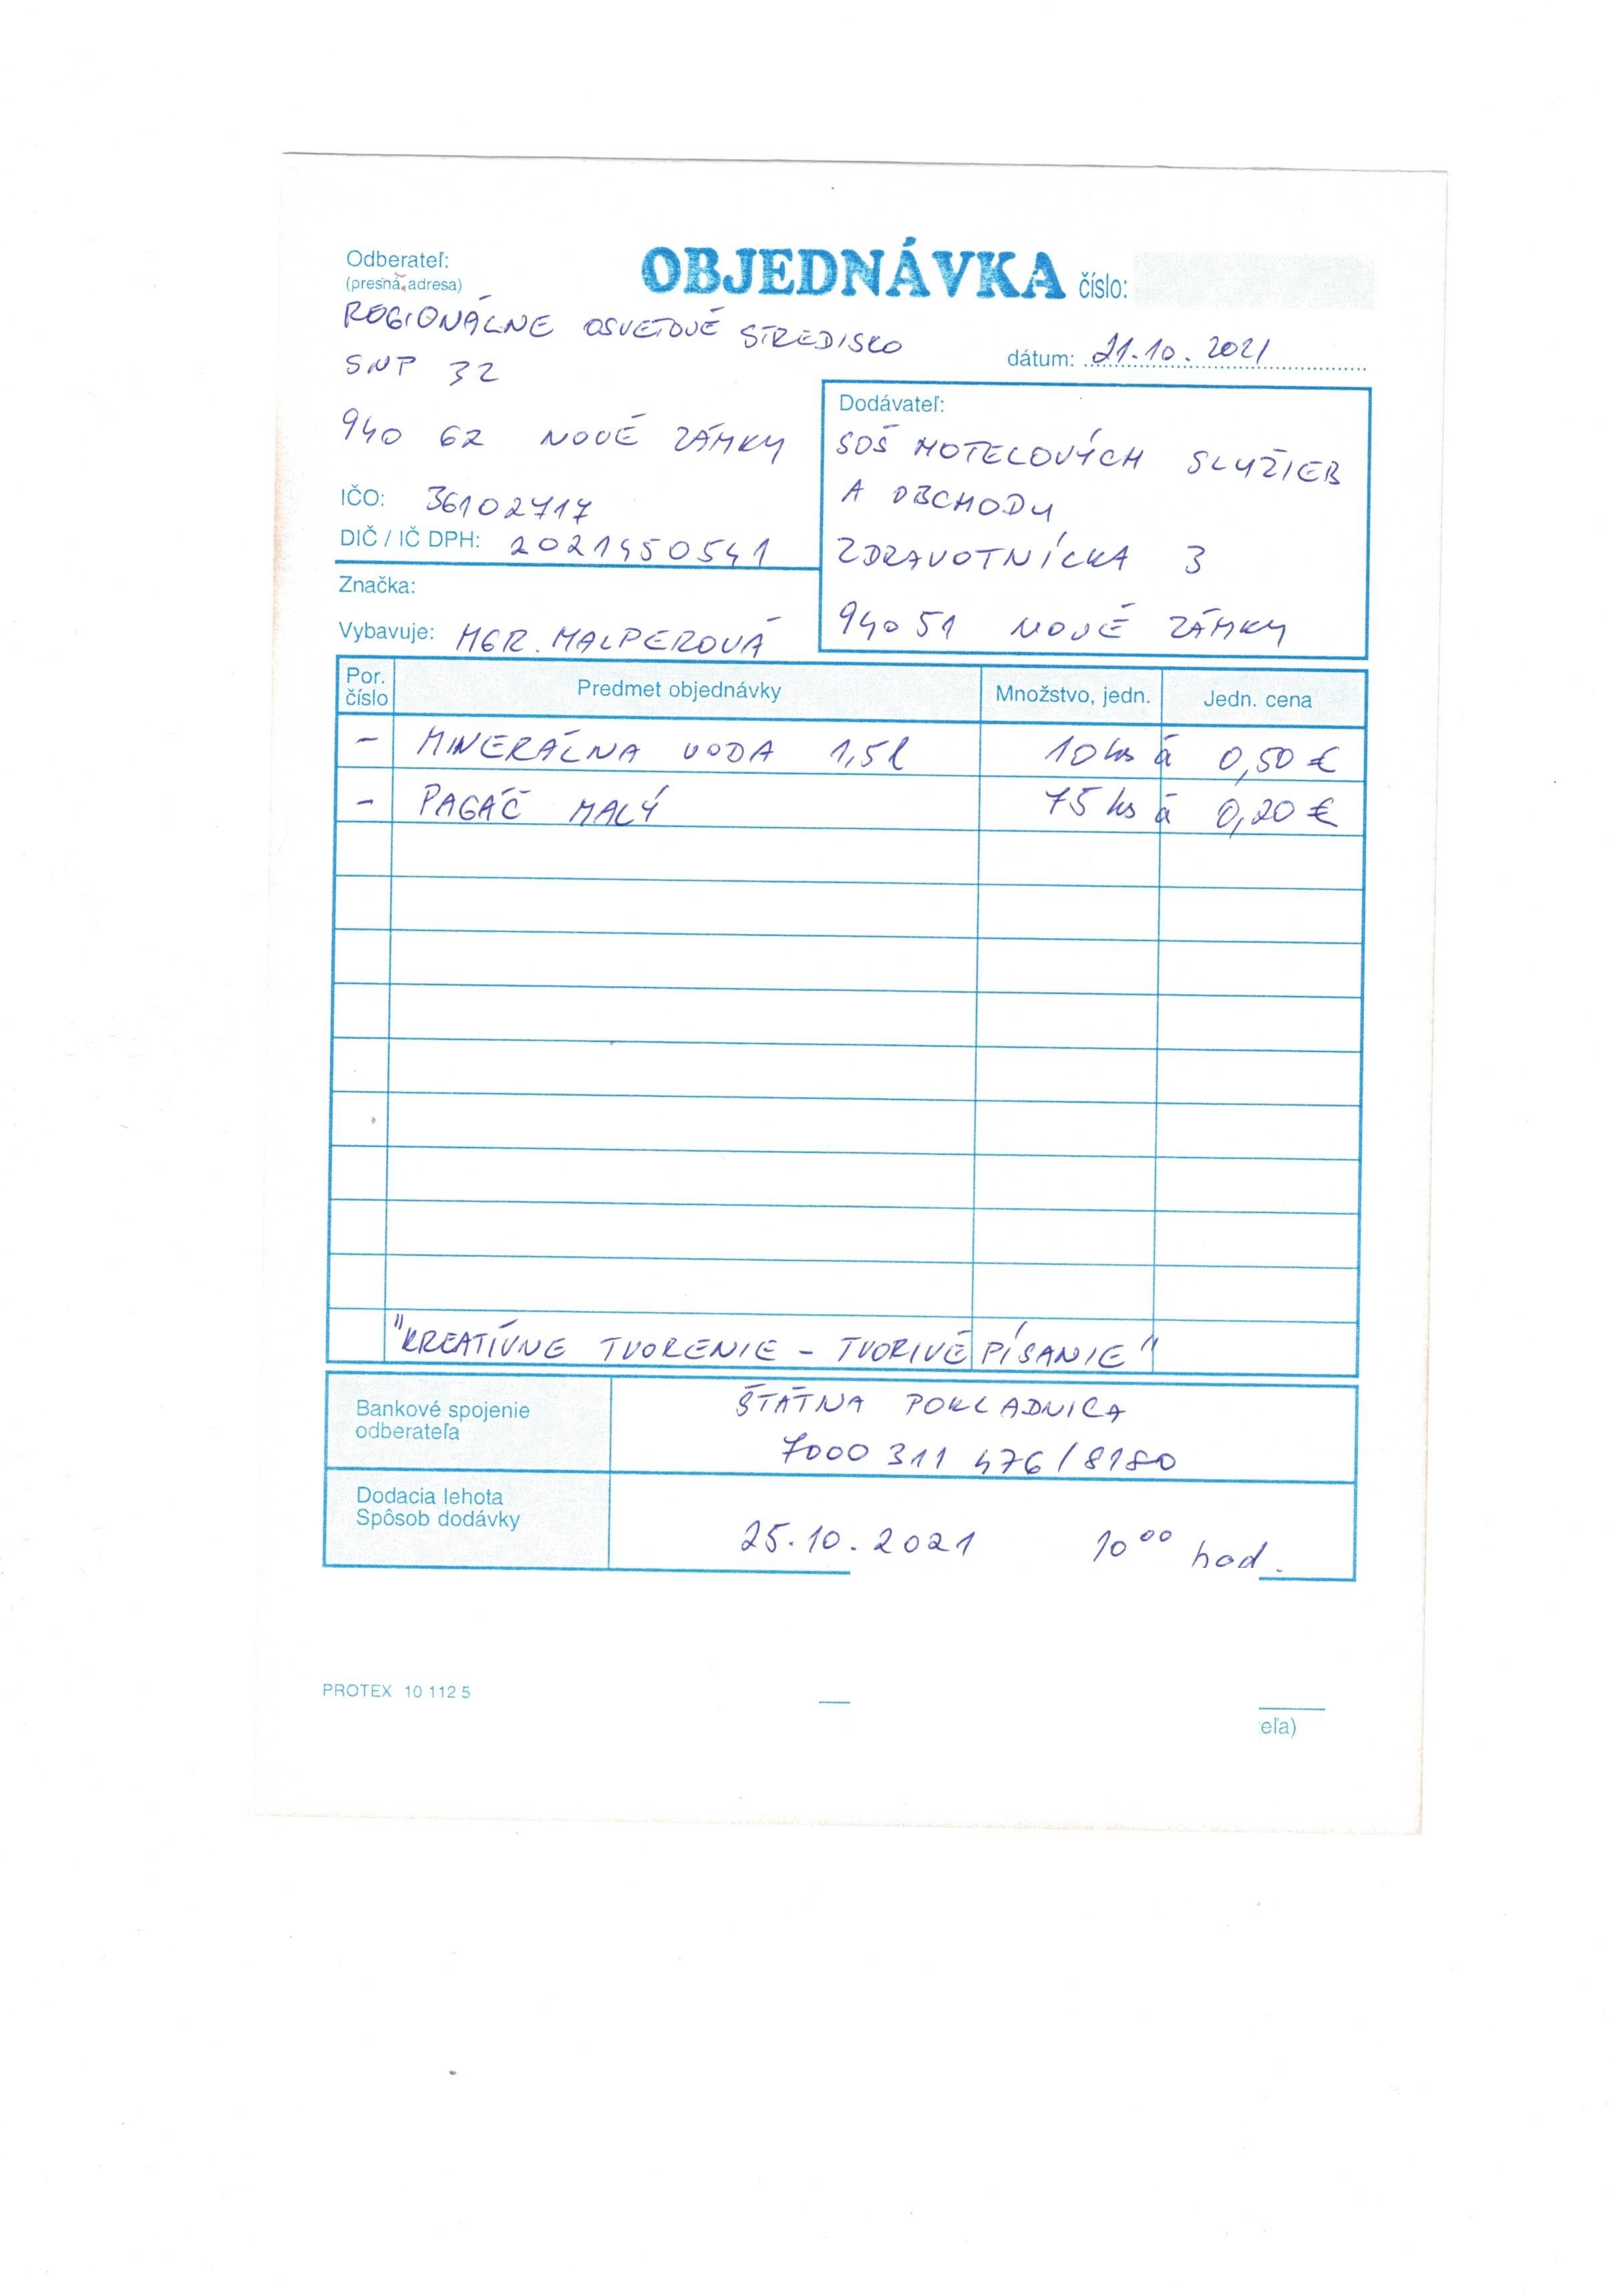 Odberateľ:
(presná adresa)
OBJEDNÁVKA číslo:
REGIONÁLNE OSVETOVÉ STREDISKO
SNP 32
dátum: 21.10.2021
940 62 NOVÉ ZÁMKY
IČO: 36102717
DIČ / IČ DPH: 2021450541
Značka:
Vybavuje: MGR. MALPEROVÁ
Dodávateľ:
SOŠ HOTELOVÝCH SLUŽIEB
A OBCHODU
ZDRAVOTNÍCKA 3
940 51 NOVÉ ZÁMKY
Por. číslo Predmet objednávky Množstvo, jedn. Jedn. cena
– MINERÁLNA VODA 1,5l 10 ks á 0,50 €
– PAGÁČ MALÝ 75 ks á 0,20 €
"KREATÍVNE TVORENIE – TVORIVÉ PÍSANIE"
Bankové spojenie
odberateľa
ŠTÁTNA POKLADNICA
7000 311 476/8180
Dodacia lehota
Spôsob dodávky
25.10.2021 10⁰⁰ hod.
PROTEX 10 112 5
eľa)